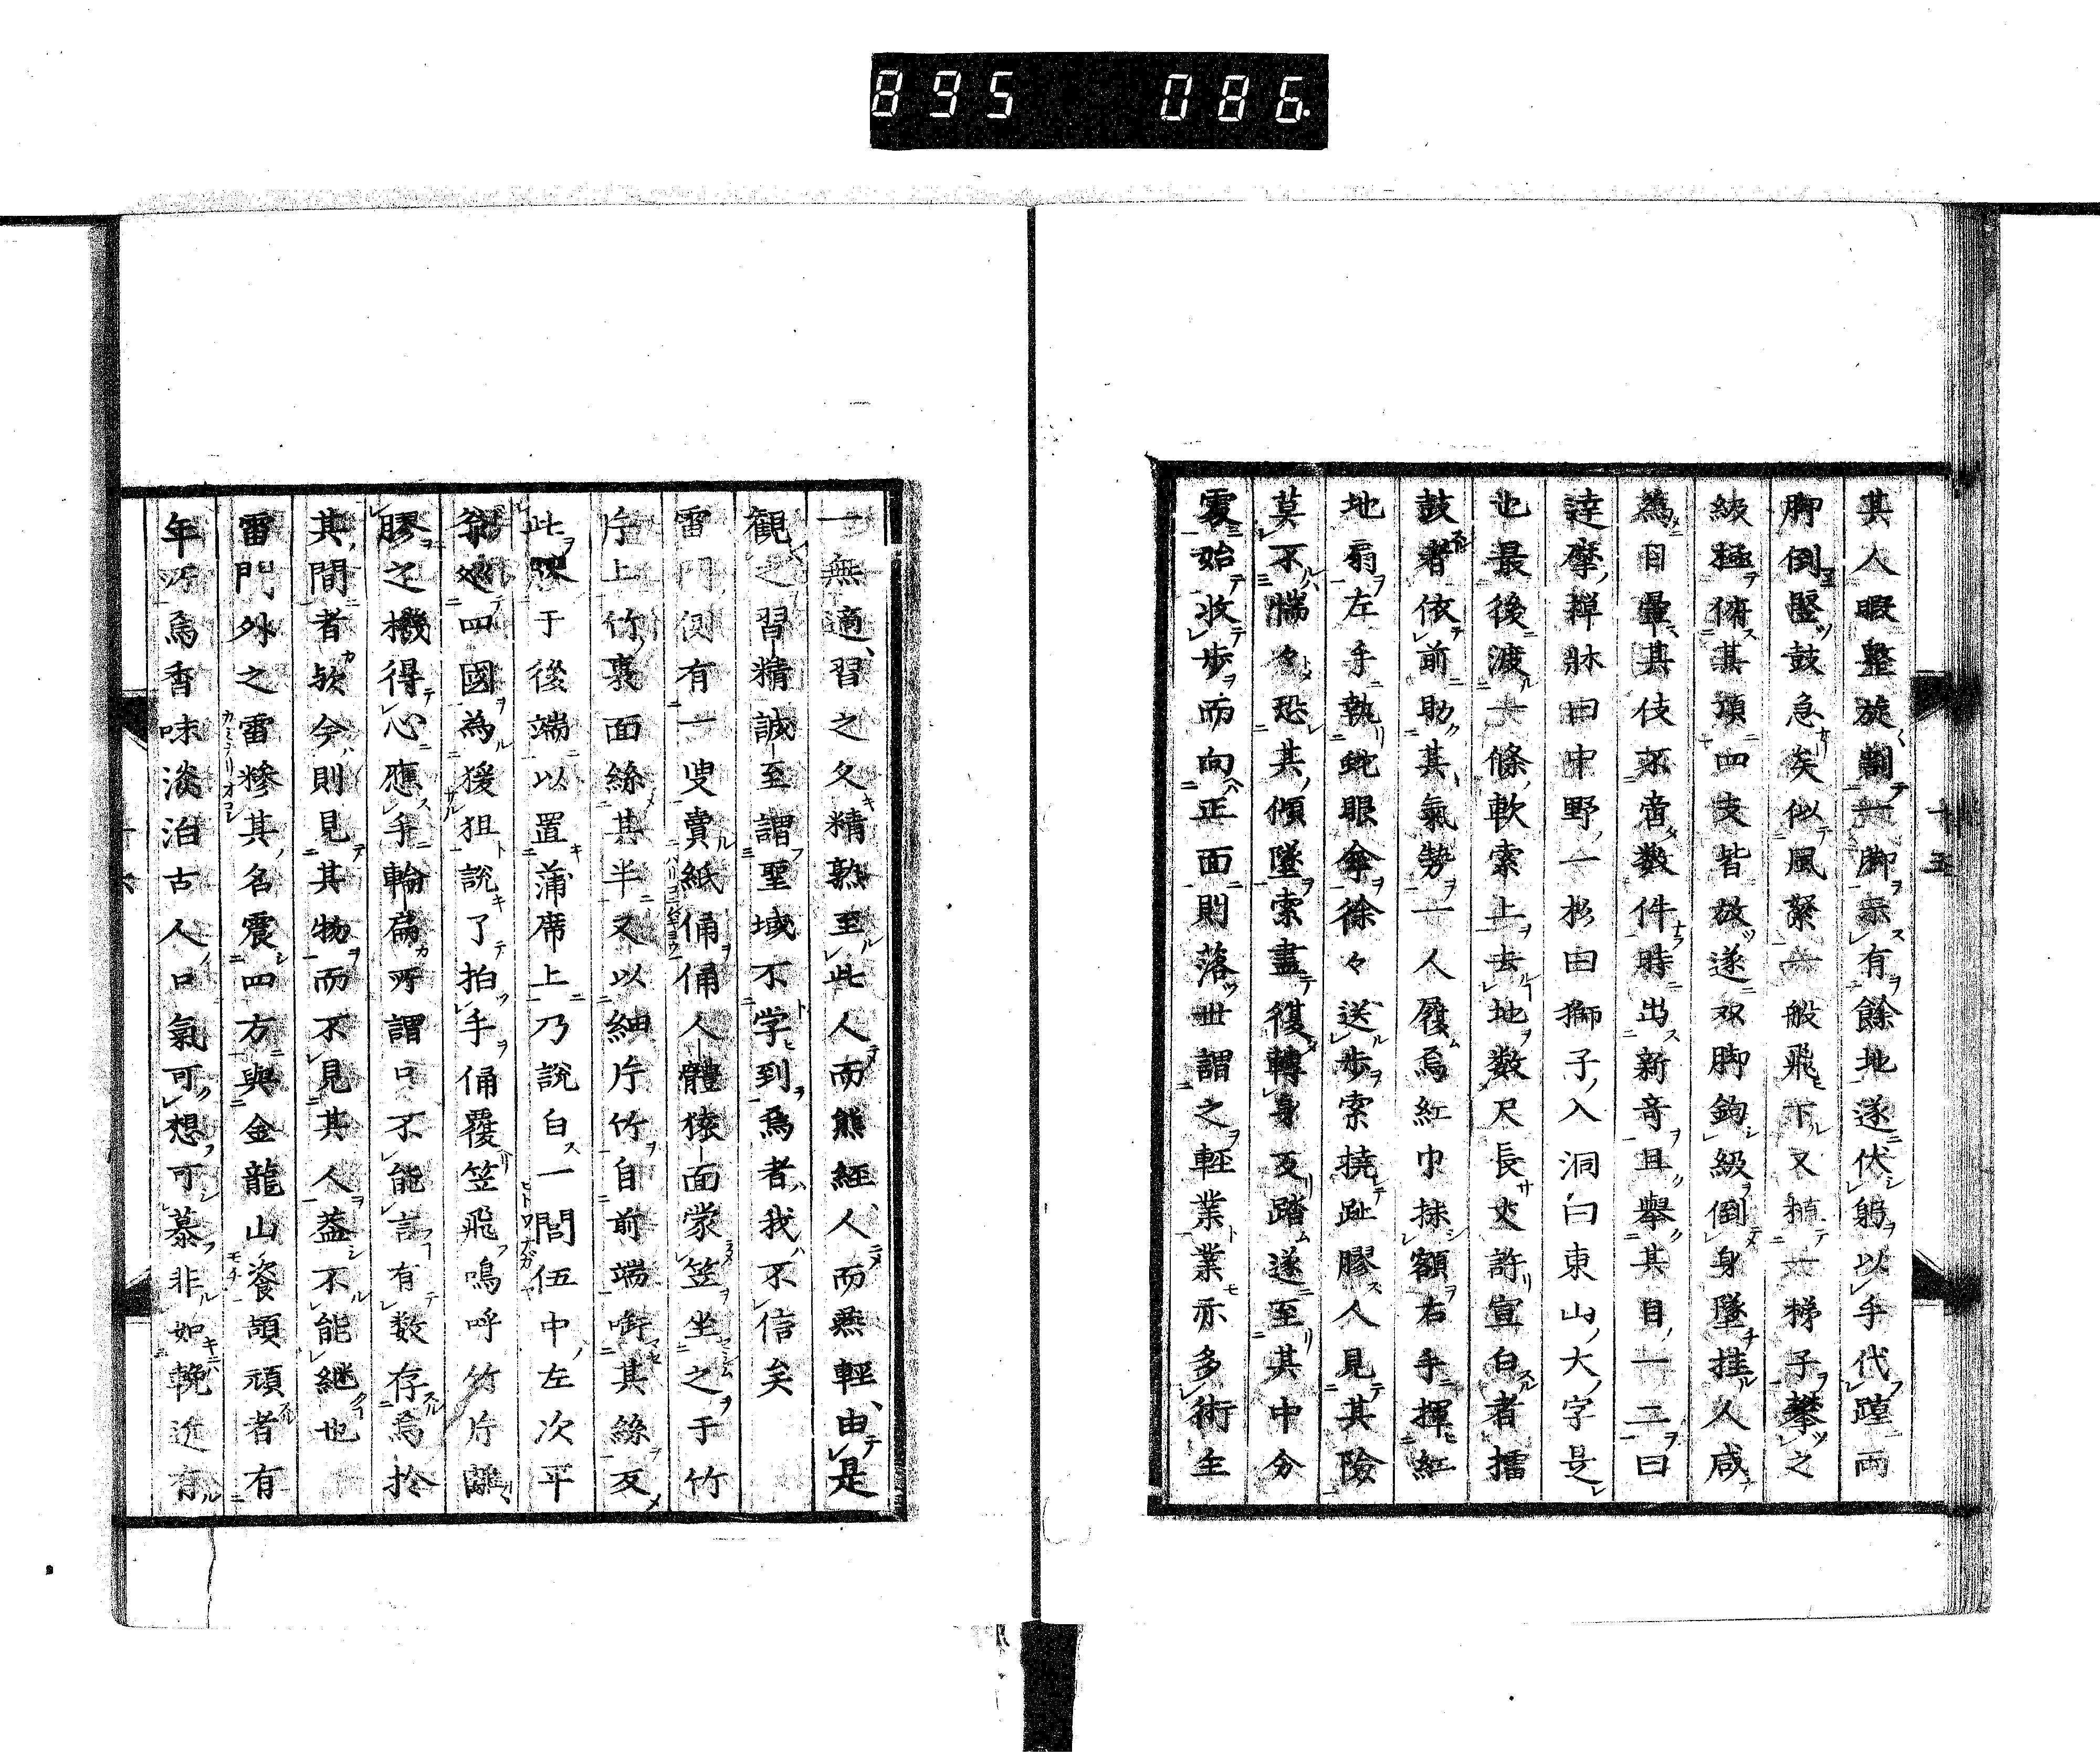 895 086
十五
其人暇整旋割一脚示有餘地遂伏躬以手代蹱両
脚倒竪鼓急矣似風繁一般飛下又植一梯子攀之
級極俯其項四支皆放遂双脚鉤級倒身墜挂人咸
為目暈其伎不啻数件時出新竒且舉其目一二曰
達摩禅牀曰中野一杉曰獅子入洞曰東山大字是
也最後渡一條軟索上去地数尺長丈許宣白者擂
鼓者依前助其氣勢一人履烏紅巾抹額右手揮紅
地扇左手執蛇眼傘徐々送歩索撓趾膠人見其險
莫不惴々恐其傾墜索盡復轉身反踏遂至其中分
处始收歩而向正面則落世謂之軽業業亦多術生
一無適習之久精熟至此人而熊経人而燕輕由是
観之習精誠至謂聖域不学到焉者我不信矣
雷門側有一叟賣紙俑俑人體猿面蒙笠坐之于竹
片上竹裏面絲其半又以細片竹自前端啣其絲反
此決于後端以置蒲席上乃説白一閭伍中左次平
翁処四國為猨狙説了拍手俑覆笠飛鳴呼竹片離
膠之機得心應手輪扁所謂口不能言有数存焉於
其間者欤今則見其物而不見其人葢不能継也
雷門外之雷糝其名震四方與金龍山餈頡頏者有
年所焉香味淡泊古人口氣可想可慕非如輓近有